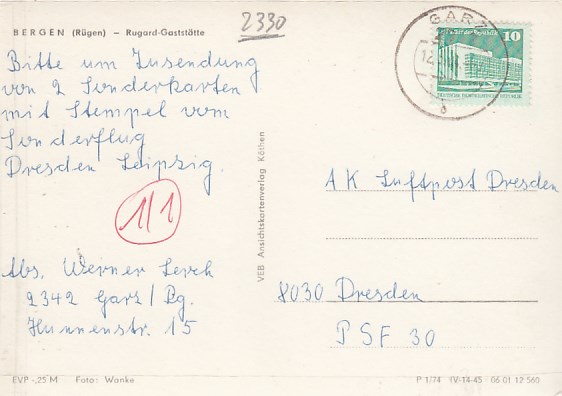 2330
BERGEN (Rügen) – Rugard-Gaststätte
Bitte um Zusendung
von 2 Sonderkarten
mit Stempel vom
Sonderflug
Dresden Leipzig.
1/1
Abs. Werner Lerch
2342 Garz/Rg.
Hunnenstr. 15
EVP -,25 M Foto: Wanke
VEB Ansichtskartenverlag Köthen
GARZ
10
a
AK Luftpost Dresden
8030 Dresden
PSF 30
P 1/74 IV-14-45 06 01 12 560